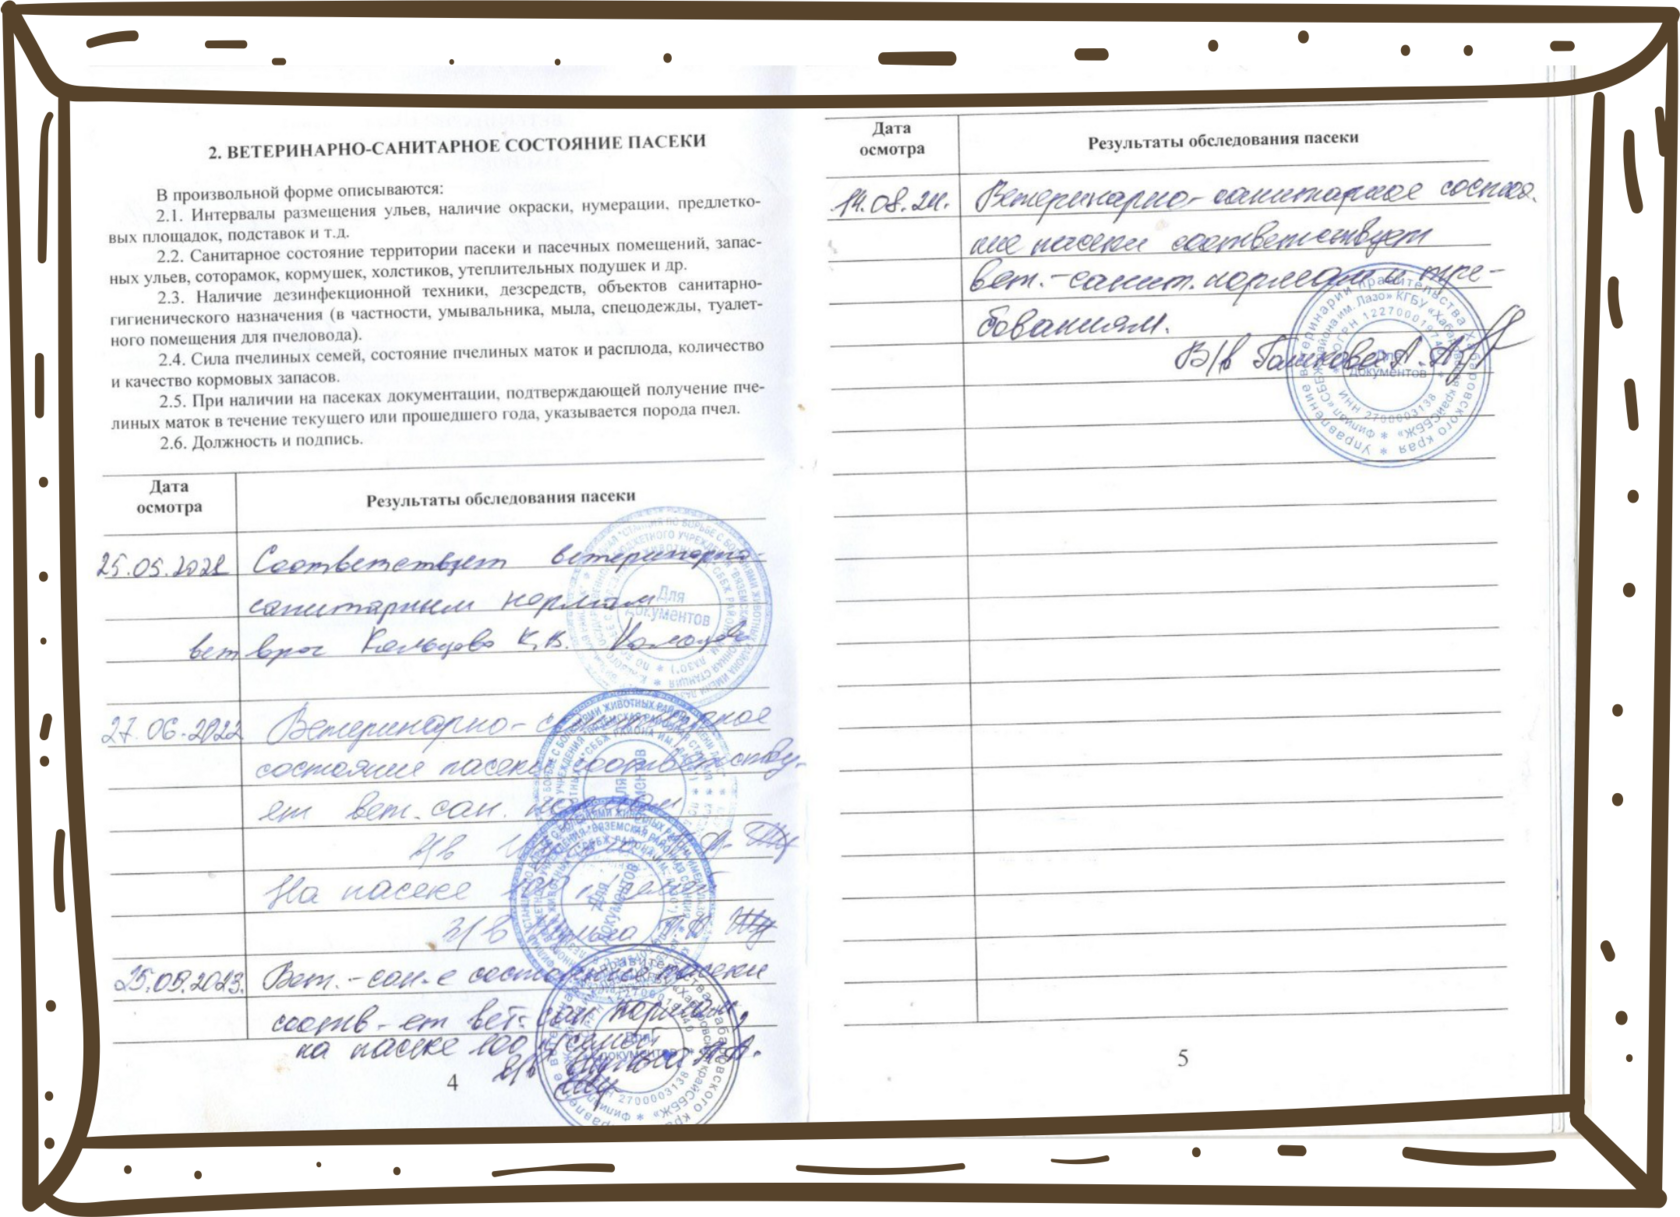 2. ВЕТЕРИНАРНО-САНИТАРНОЕ СОСТОЯНИЕ ПАСЕКИ
В произвольной форме описываются:
2.1. Интервалы размещения ульев, наличие окраски, нумерации, предлетко-
вых площадок, подставок и т.д.
2.2. Санитарное состояние территории пасеки и пасечных помещений, запас-
ных ульев, соторамок, кормушек, холстиков, утеплительных подушек и др.
2.3. Наличие дезинфекционной техники, дезсредств, объектов санитарно-
гигиенического назначения (в частности, умывальника, мыла, спецодежды, туалет-
ного помещения для пчеловода).
2.4. Сила пчелиных семей, состояние пчелиных маток и расплода, количество
и качество кормовых запасов.
2.5. При наличии на пасеках документации, подтверждающей получение пче-
линых маток в течение текущего или прошедшего года, указывается порода пчел.
2.6. Должность и подпись.
Дата
осмотра
Результаты обследования пасеки
25.05.2021 Соответствует ветеринарно-
санитарным нормам
ветврач Кольцова К.В.
Для
документов
27.06.2022 Ветеринарно-санитарное
состояние пасеки соответству-
ет вет.сан. нормам
На пасеке
Для
документов
25.09.2023. Вет.-сан-е состояние пасеки
соотв-ет вет-сан нормам,
на пасеке 100 п/семей
4
Дата
осмотра
Результаты обследования пасеки
14.08.24. Ветеринарно-санитарное состоя-
ние пасеки соответствует
вет.-санит.нормам и тре-
бованиям.
В/в
Управление ветеринарии правительства Хабаровского края
Для
документов
ИНН 2700003138
5